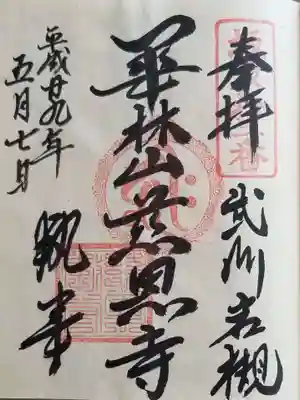 奉拝
武州岩槻
華林山慈恩寺
平成廿九年
五月七日
執事